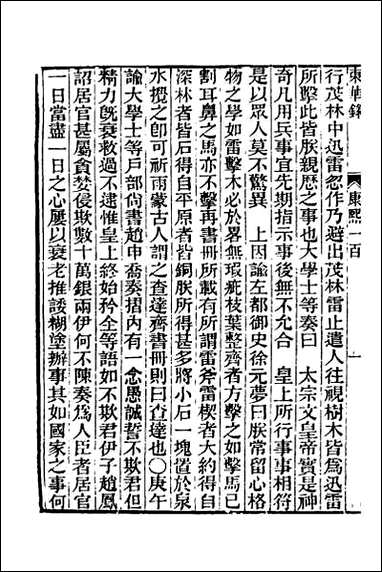 東華錄 康熙一百 一
行茂林中迅雷忽作乃避出茂林雷止遣人往視樹木皆爲迅雷
所擊此皆朕親歷之事也大學士等奏曰 太宗文皇帝實是神
奇凡用兵事宜先期指示事後無不允合 皇上所行事事相符
是以眾人莫不驚異 上因諭左都御史徐元夢曰朕常留心格
物之學如雷擊木必於畧無瑕疵枝葉整齊者方擊之如擊馬已
割耳鼻之馬亦不擊再書冊所載有所謂雷斧雷楔者大約得自
深林者皆石得自平原者皆銅朕所得甚多將小石一塊置於泉
水攪之卽可祈雨蒙古人謂之查達齊書冊則曰查達也〇庚午
諭大學士等戶部尚書趙申喬奏摺內有一念愚誠誓不欺君但
精力旣衰救過不逮惟皇上終始矜全等語如不欺君伊子趙鳳
詔居官甚屬貪婪侵欺數十萬銀兩伊何不陳奏爲人臣者居官
一日當盡一日之心屢以衰老推諉糊塗辦事其如國家之事何